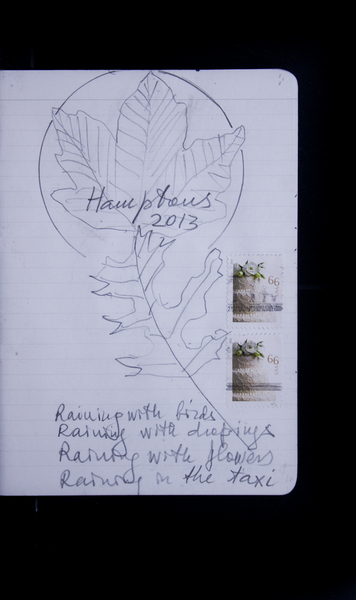 Hamptons
2013
My
66
66
Raining with birds
Raining with droppings
Raining with flowers
Raining in the taxi